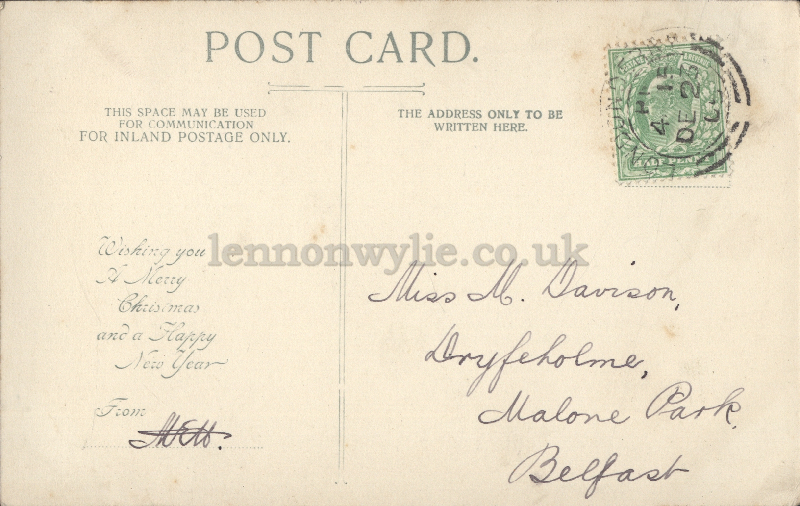 POST CARD.
THIS SPACE MAY BE USED
FOR COMMUNICATION
FOR INLAND POSTAGE ONLY.
THE ADDRESS ONLY TO BE
WRITTEN HERE.
4 15 PM
DE 23
HALF PENNY
lennonwylie.co.uk
Wishing you
A Merry
Christmas
and a Happy
New Year
From
Miss M. Davison,
Dryfeholme,
Malone Park,
Belfast